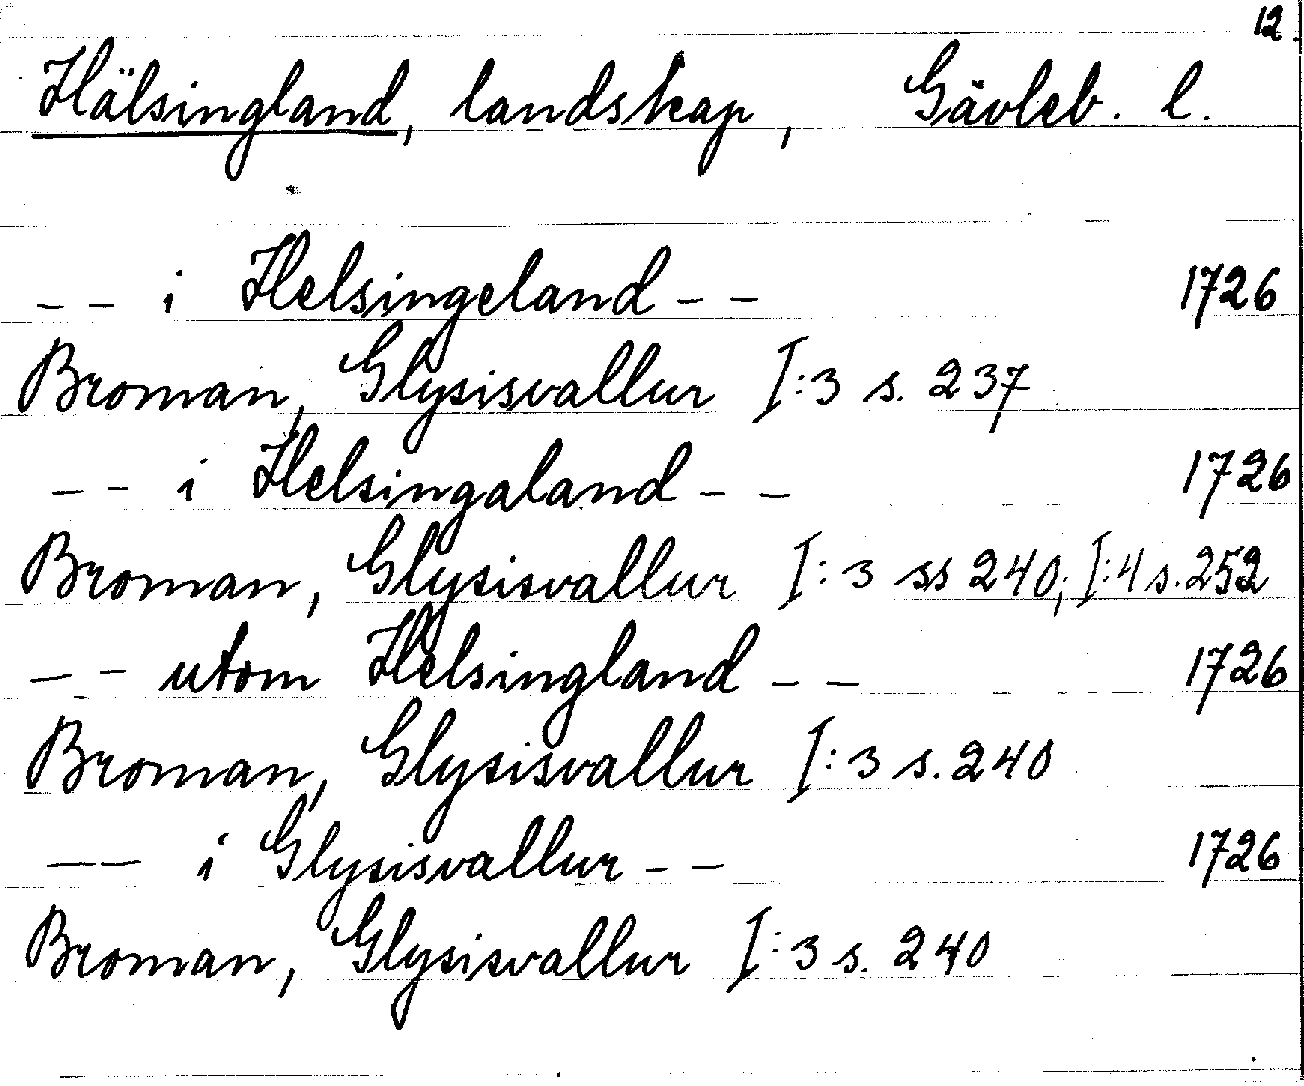 12.
Hälsingland, landskap, Gävleb. l.
-- i Helsingeland -- 1726
Broman, Glysisvallur I:3 s. 237
-- i Helsingaland -- 1726
Broman, Glysisvallur I:3 ss 240; I:4 s. 252
-- utom Helsingland -- 1726
Broman, Glysisvallur I:3 s. 240
-- i Glysisvallur -- 1726
Broman, Glysisvallur I:3 s. 240